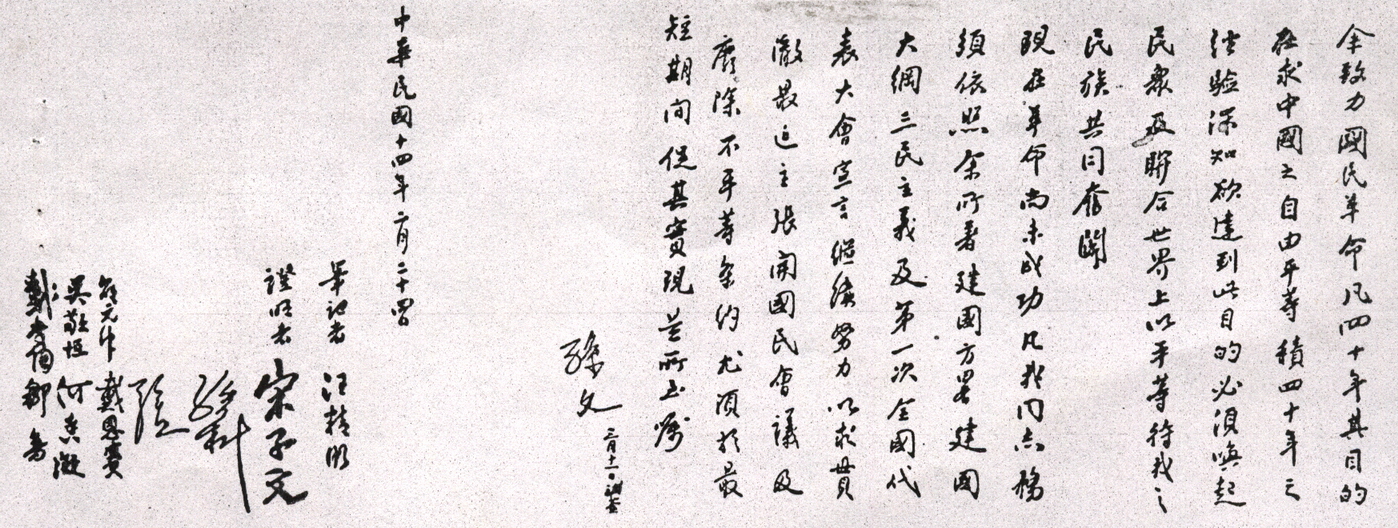 余致力國民革命凡四十年其目的
在求中國之自由平等積四十年之
经驗深知欲達到此目的必須喚起
民衆及聨合世界上以平等待我之
民族共同奮鬭
現在革命尚未成功凡我同志務
須依照余所著建國方畧建國
大綱三民主義及第一次全國代
表大會宣言繼續努力以求貫
澈最近主張開國民會議及
廢除不平等条約尤須於最
短期间促其實現是所至嘱
孫文 三月十一日補簽
中華民國十四年二月二十四日
筆記者 汪精衛
證明者 宋子文
孫科
孔
戴恩賽
吳敬恆 何香凝
戴季陶 鄒魯